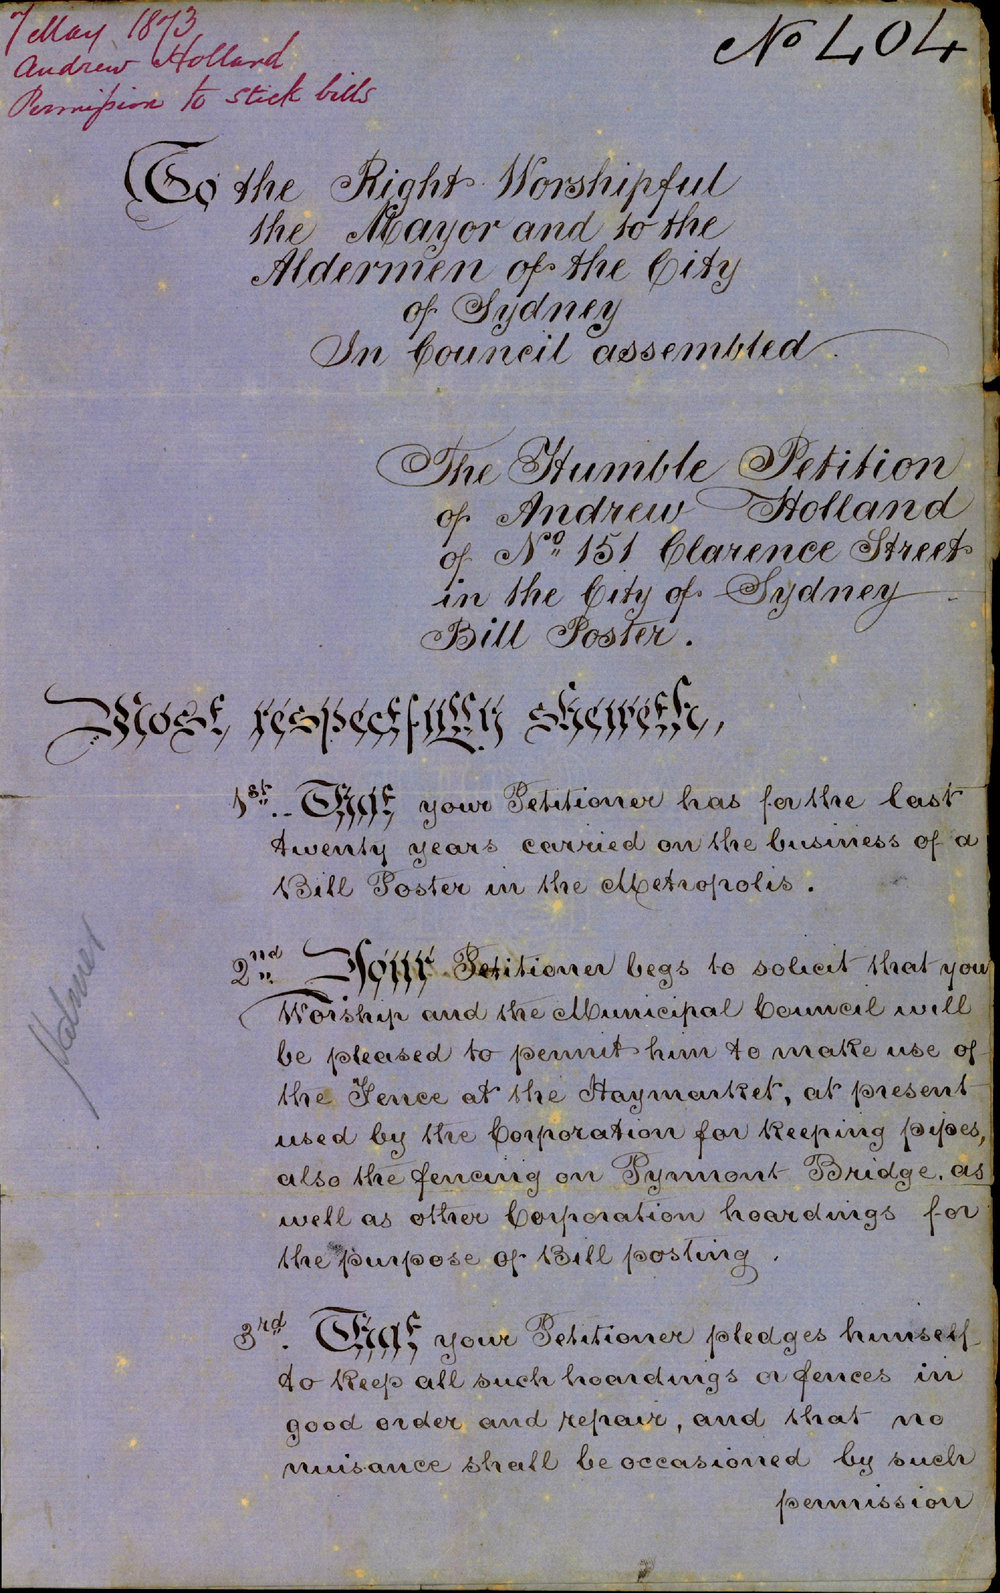 7 May 1873
Andrew Holland
Permission to stick bills
No 404
To the Right Worshipful
the Mayor and to the
Aldermen of the City
of Sydney
In Council assembled
The Humble Petition
of Andrew Holland
of No 151 Clarence Street
in the City of Sydney
Bill Poster.
Most respectfully sheweth,
1st. That your Petitioner has for the last
twenty years carried on the business of a
Bill Poster in the Metropolis.
2nd Your Petitioner begs to solicit that your
Worship and the Municipal Council will
be pleased to permit him to make use of
the Fence at the Haymarket, at present
used by the Corporation for keeping pipes,
also the fencing on Pyrmont Bridge, as
well as other Corporation hoardings for
the purpose of Bill posting.
3rd. That your Petitioner pledges himself
to keep all such hoardings or fences in
good order and repair, and that no
nuisance shall be occasioned by such
permission